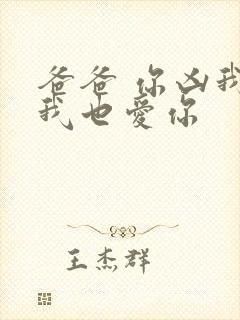 爸爸 你凶我
我也愛你
王杰群